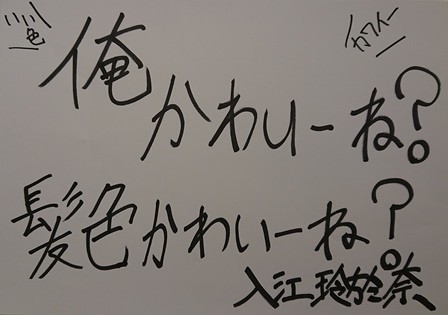 いい色
カワイー
俺かわいーね?
髪色かわいーね?
入江玲於奈、